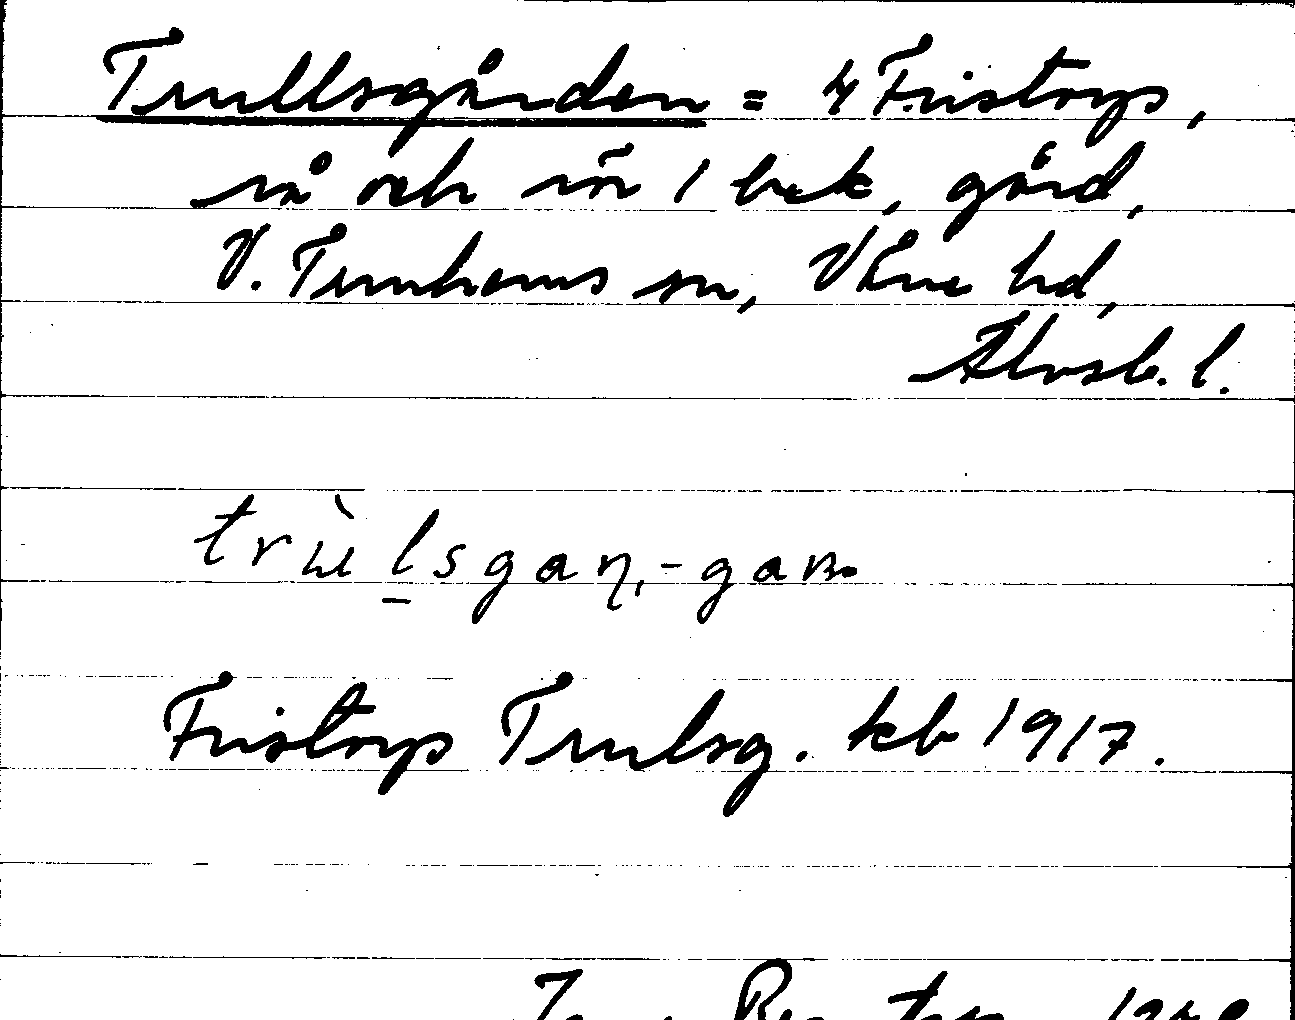 Trullsgården = 4 Fristorp,
så och sö 1 bek. gård,
V. Tunhems sn, Väne hd,
Älvsb. l.
trùlsgaṇ, -gan.
Fristorp Trulsg. kb 1917.